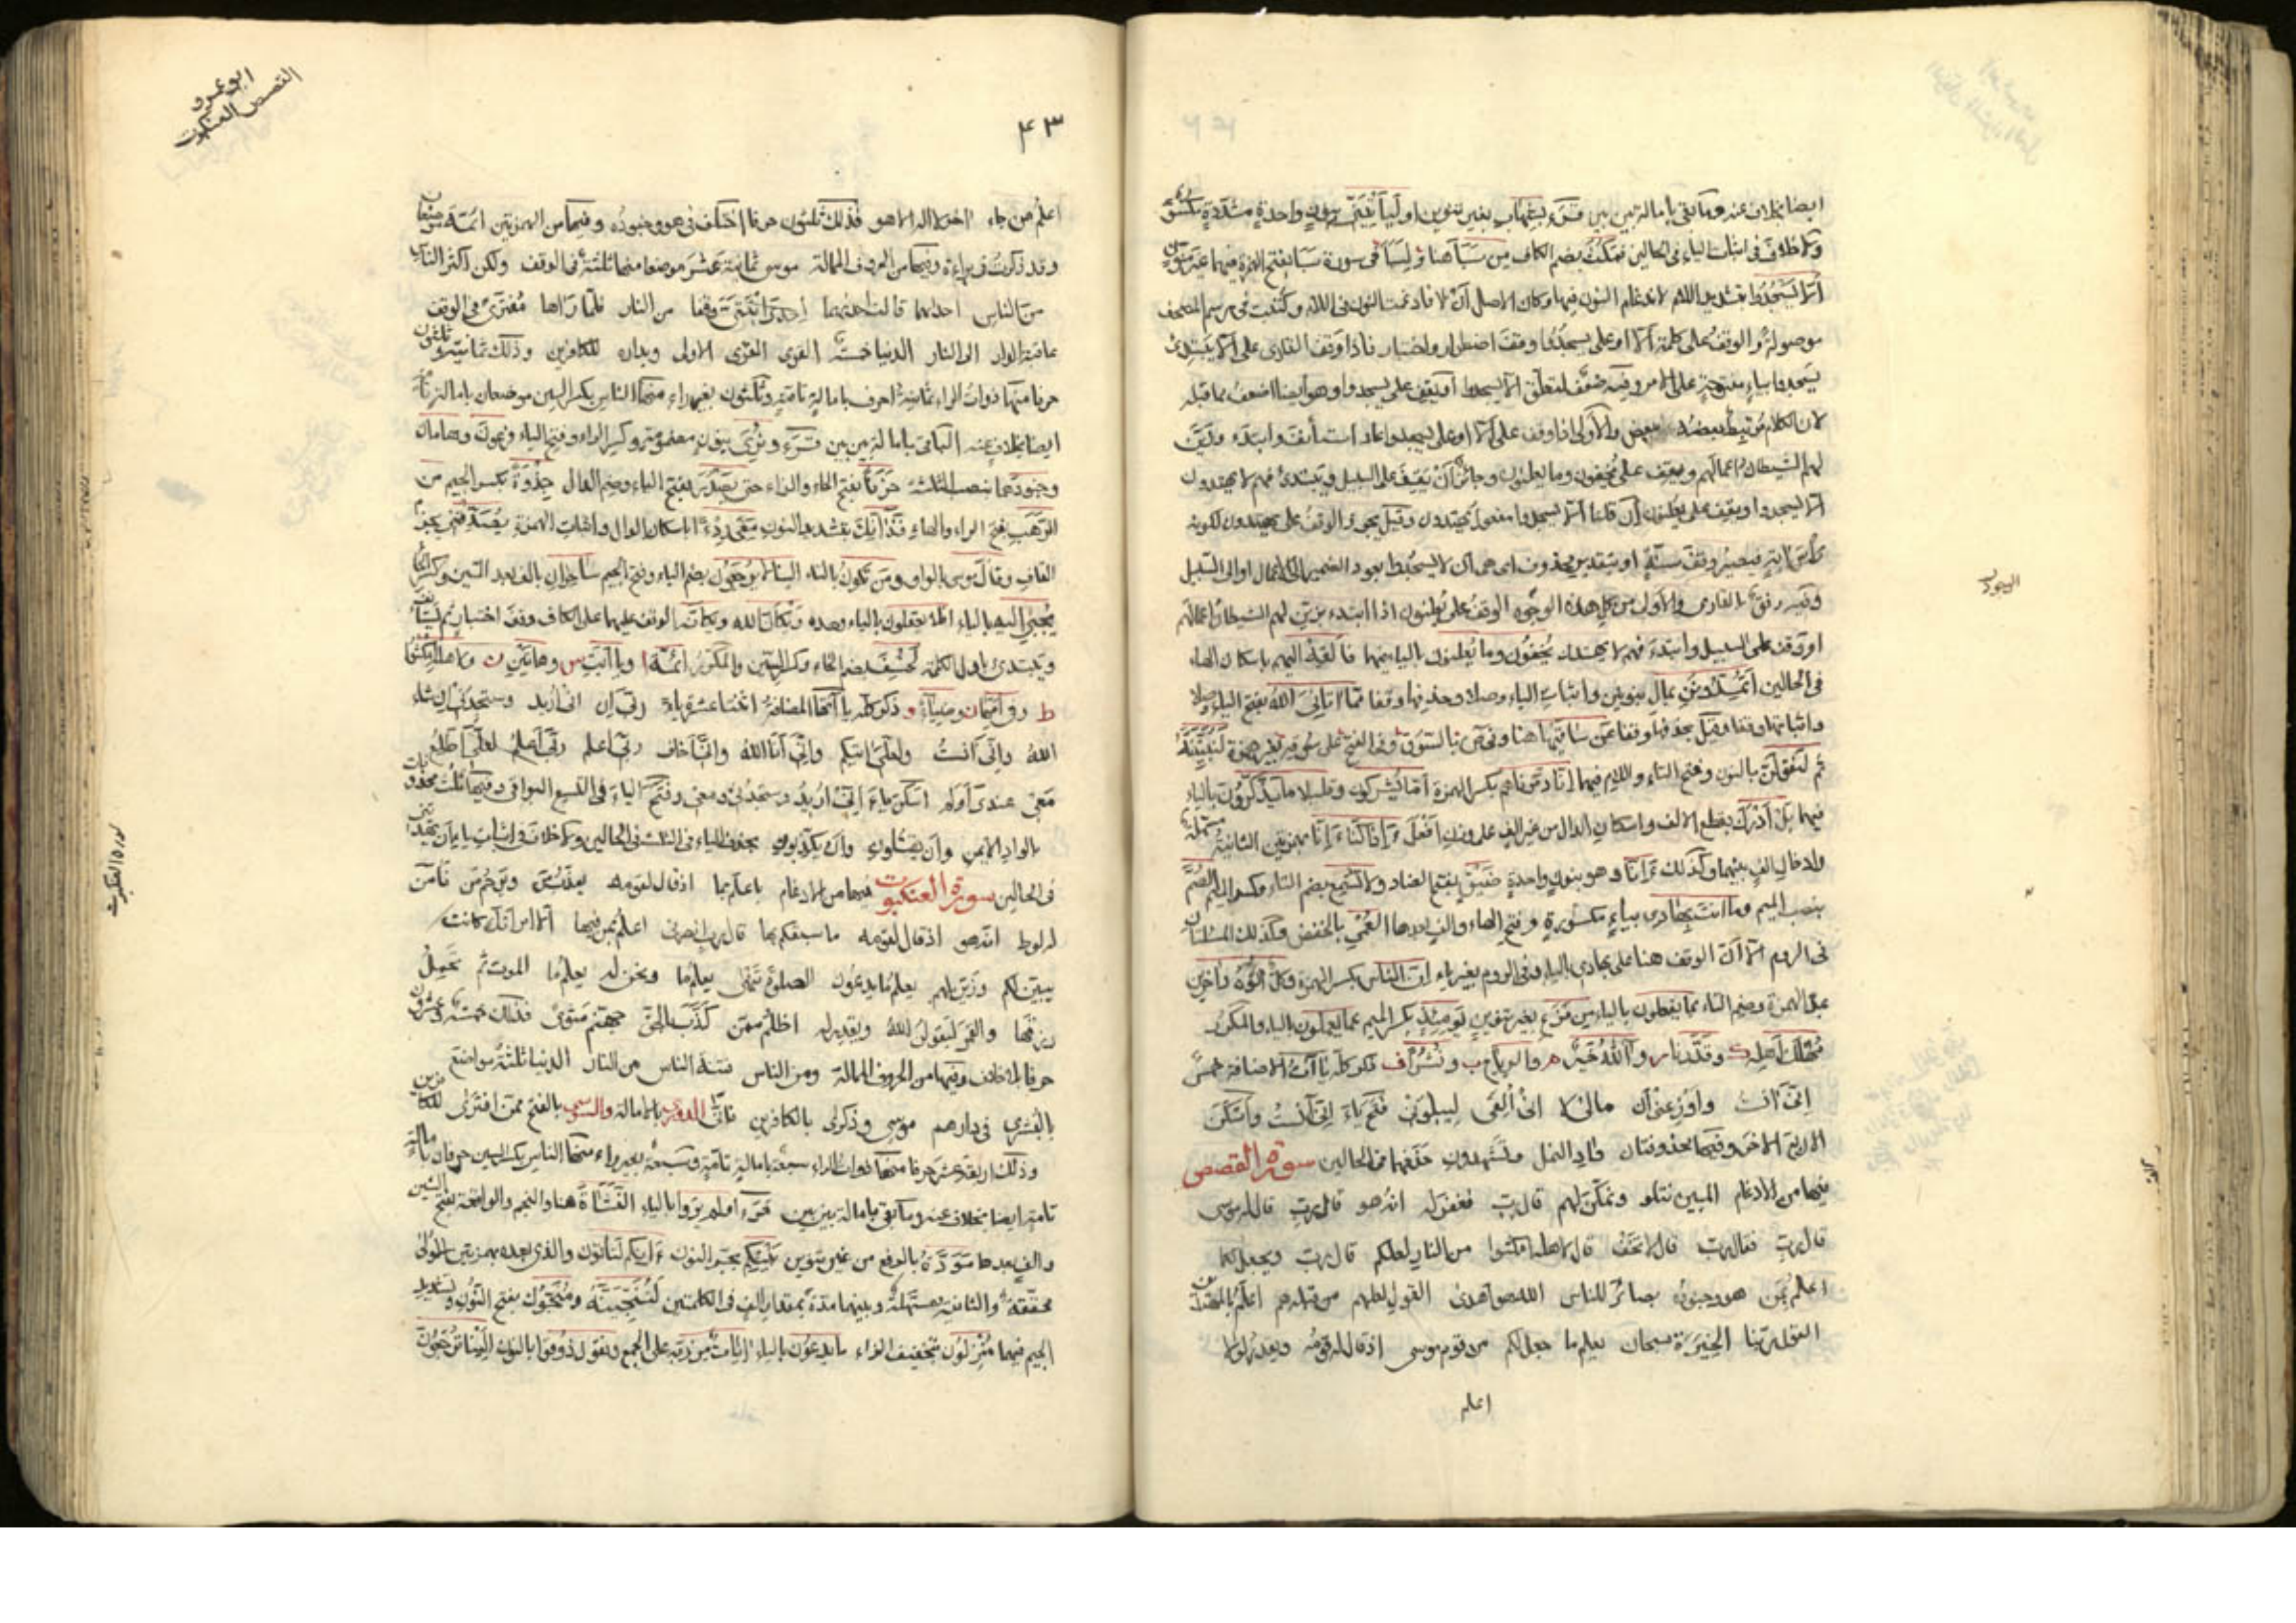 ايضا بخلاف عنه وما بقى بامالة بين بين قرء بشهاب بغير تنوين او ليأتينى بنون واحدة مشددة مكسورة
ولا خلاف فى اثبات الياء فى الحالين فمكث بضم الكاف من سبأ هنا ولسبأ فى سورة سبا بفتح الهمزة فيهما غير منون
الا يسجدوا بتشديد اللام لادغام النون فيها وكان الاصل أن لا فادغمت النون فى اللام وكتبت فى رسم المصحف
موصولة والوقف على كلمة الا او على يسجدوا وقف اضطرار واختبار فاذا وقف القارى على الا يبتدئ
يسجدوا بياء مفتوحة على الامر وفيه ضعف لتعلق الا يسجدوا او يقف على يسجدوا وهو ايضا اضعف مما قبله
لان الكلام مرتبط بعضه ببعض والاولى اذا وقف على الا او على يسجدوا عاد استأنف وابتدء وزين
لهم الشيطان اعمالهم ويقف على تخفون وما يعلنون وجائز ان يقف على السبيل ويبتدئ فهم لا يهتدون
الا يسجدوا ويقف على يعلنون ان قلنا الا يسجدوا مفعول يهتدون وقيل يجوز الوقف على يهتدون لكونه
رأس اية فيصير وقف سنة او بتقدير محذوف اى هى ان لا يسجدوا بعود الضمير الى الاعمال او الى السبيل
وفيه رفق بالقارى والاول من كل هذه الوجوه الوقف على يعلنون اذا ابتدء بزين لهم الشيطان اعمالهم
او وقف على السبيل وابتدء فهم لا يهتدون يخفون وما يعلنون بالياء فيهما فألقه اليهم باسكان الهاء
فى الحالين اتمدونن بمال بنونين واثبات الياء وصلا وحذفها وقفا فما اتانى الله بفتح الياء وصلا
واثباتها وقفا وقيل بحذفها وقفا عن ساقيها هنا وفى ص بالسوق وفى الفتح على سوقه بغير همزة لنبيتنه
ثم لنقولن بالنون وفتح التاء واللام فيهما انا دمرناهم بكسر الهمزة اما يشركون وقليلا ما يذكرون بالياء
فيهما بل أدرك بقطع الالف واسكان الدال من غير الف على وزن افعل ءاذا كنا ءانا بهمزتين الثانية مسهلة
وادخال الف بينهما وكذلك ترابا وهو بنون واحدة ضيق بفتح الضاد ولا تسمع بضم التاء وكسر الميم الصم
بنصب الميم وما انت بهادى بياء مكسورة وفتح الهاء والف بعدها العمى بالخفض وكذلك المسئلتان
فى الروم الا ان الوقف هنا على بهادى بالياء وفى الروم بغير ياء ان الناس بكسر الهمزة وكل اتوه داخرين
بمد الهمزة وضم التاء بما يفعلون بالياء من فزع بغير تنوين يومئذ بكسر الميم عما يعملون بالياء والمكرر
مهلك اهله وقدرنا ر وآلله خير م والرياح ب ونشرا ف ذكر كل ياآت الاضافة خمس
انى آنست واوزعنى ان مالى لا انى القى ليبلونى فتح ياء انى آنست واسكن
الاربع الاخر وفيها محذوفتان واد النمل وتشهدون حذفهما فى الحالين سورة القصص
فيها من الادغام المبين نتلو ونمكن لهم قال رب فغفر له انه هو قال رب قال له موسى
قال رب فقال رب قال لا تخف قال لاهله امكثوا من النار لعلكم قال رب ونجعل لكما
اعلم بمن هو وجنوده بصائر للناس الله هو اهدى القول لعلهم من قبله هم اعلم بالمهتدين
القول ربنا الخيرة سبحان يعلم ما جعل لكم من قوم موسى اذ قال له قومه ويقدر لولا
اعلم
السجود
ابو عمرو
القصص العنكبوت
۴۳
اعلم من جاء اخر لا اله الا هو فذلك ثلثون حرفا اختلف فى هو وجنوده وفيها من الهمزتين ائمة موضعان
وقد ذكرت فى براءة وفيها من الحروف الممالة موسى ثمانية عشر موضعا منها ثلثة فى الوقف ولكن اكثر الناس
من الناس احداهما قالت احداهما احدى ابنتى وقفا من النار فلما راها مفترى فى الوقف
عاقبة الدار الى النار الدنيا خمسة القرى القرى الاولى وبداره للكافرين وذلك ثمانية وثلثون
حرفا منها ذوات الراء ثمانية احرف بامالة تامة وثلثون بغير راء منها الناس بكسر السين موضعان بامالة تامة
ايضا بخلاف عنه الباقى بامالة بين بين قرء ونرى بنون مضمومة وكسر الراء وفتح الياء فرعون وهامان
وجنودهما بنصب الثلثة حزنا بفتح الحاء والزاء حتى يصدر بفتح الياء وضم الدال جذوة بكسر الجيم من
الرهب بفتح الراء والهاء فذانك بتشديد النون معى ردءا باسكان الدال واثبات الهمزة يصدقنى بجزم
القاف وقال موسى بالواو ومن تكون بالتاء الينا لا يرجعون بضم الياء وفتح الجيم ساحران بالف بعد السين وكسر الحاء
يجبى اليه بالياء افلا يعقلون بالياء وحده ويكأن الله ويكأنه الوقف عليهما على الكاف وقف اختبار ثم يستأنف
ويبتدئ باول الكلمة لخسف بضم الخاء وكسر السين والمكرر ائمة ا ويا ابت س وهاتين ن ولاهله امكثوا
ط وفى امها ن وضياء و ذكر كل ياآتها المضافة اثنتا عشرة ياء ربى ان انى اريد وستجدنى ان شاء
الله وانى آنست ولعلى اتيكم وانى انا الله وانى اخاف ربى اعلم ربى اعلم لعلى اطلع
معى عندى اولم اسكن ياء انى اريد وستجدنى ومعى وفتح الياء فى التسع البواقى وفيها ثلث محذوفات
بالواد الايمن وان يقتلون وان يكذبون بحذف الياء فى الثلث فى الحالين ولا خلاف فى اثبات ياء ان يهدينى
فى الحالين سورة العنكبوت فيها من الادغام باعلم بما اذ قال لقومه يعذب من ويرحم من فآمن
له لوط انه هو اذ قال لقومه ما سبقكم بها قال رب انصرنى اعلم بمن فيها الا امراتك كانت
تبين لكم وزين لهم يعلم ما يدعون الصلوة تنهى يعلم ما ونحن له يعلم ما الموت ثم تحمل
رزقها والقمر ليقولن الله ويقدر له اظلم ممن كذب بالحق جهنم مثوى فذلك خمسة وعشرون
حرفا بلا خلاف وفيها من الحروف الممالة ومن الناس فتنة الناس من النار الدنيا ثلثة مواضع
بالبشرى فى دارهم موسى وذكرى بالكافرين تاتى الدورى بالامالة والسوسى بالفتح ممن افترى للكافرين
وذلك اربعة عشر حرفا منها ذوات الراء سبعة بامالة تامة وسبعة بغير راء منها الناس بكسر السين حرفان بامالة
تامة ايضا بخلاف عنه وما بقى بامالة بين بين قرء اولم يروا بالياء النشاءة هنا والنجم والواقعة بفتح الشين
والف بعدها مودة بالرفع من غير تنوين بينكم بجر النون ءانكم لتاتون والذى بعده بهمزتين الاولى
محققة والثانية مسهلة وبينهما مدة بمقدار الف فى الكلمتين لننجينه ومنجوك بفتح النون وتشديد
الجيم فيهما منزلون بتخفيف الزاء ما يدعون بالياء ايات من ربه على الجمع ونقول ذوقوا بالنون الينا ترجعون
سورة العنكبوت